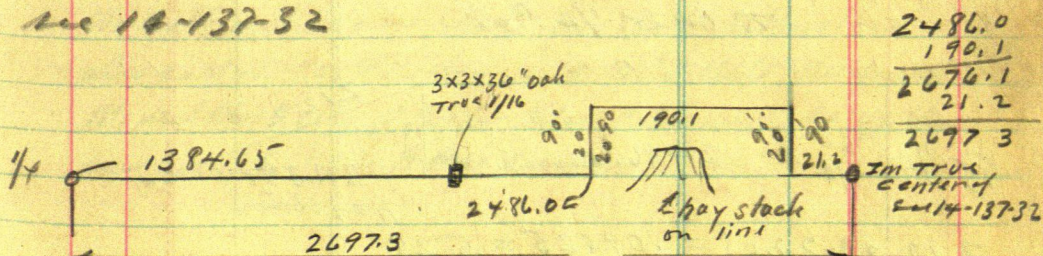 sec 14-137-32
2486.0
190.1
2676.1
21.2
2697 3
3x3x36" oak
True 1/16
90°
20
20 90
190.1
20 90°
90
21.2
1/4
1384.65
2486.0
hay stack
on line
Im True
Center of
sec 14-137-32
2697.3